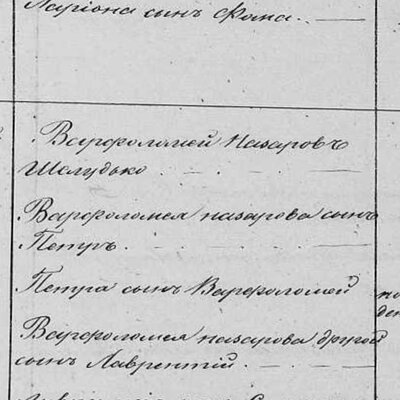 Лариона сынъ Фома
Варфоломей Назаровъ
Шелудько
Варфоломея назарова сынъ
Петръ
Петра сынъ Варфоломей
Варфоломея назарова другой
сынъ Лаврентій